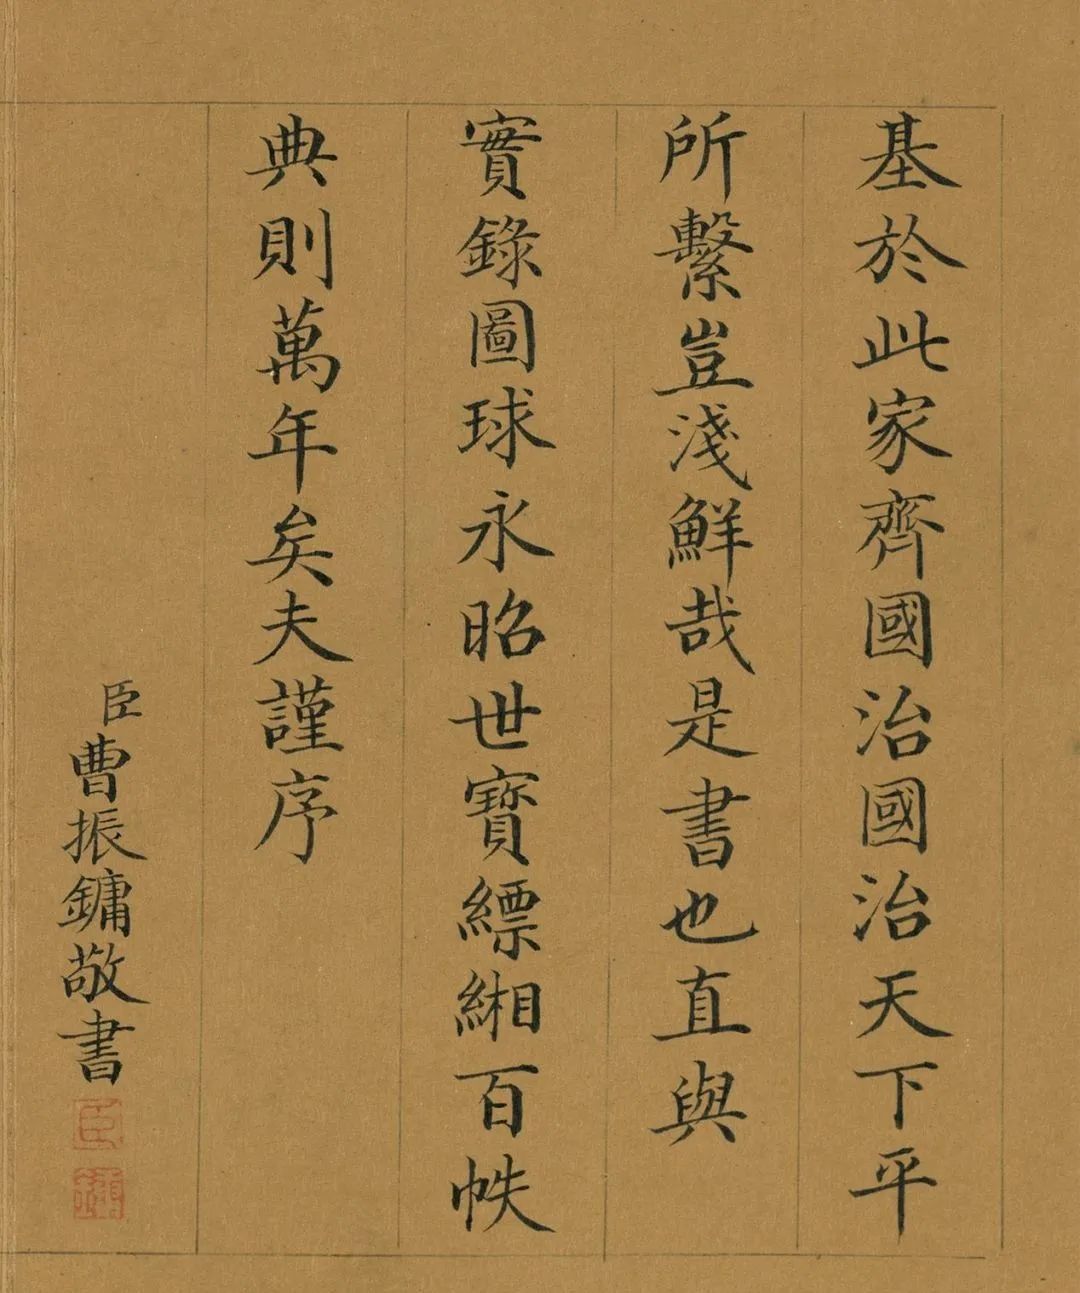 基於此家齊國治國治天下平
所繫豈淺鮮哉是書也直與
實錄圖球永昭世寶縹緗百帙
典則萬年矣夫謹序
臣曹振鏞敬書
臣
鏞